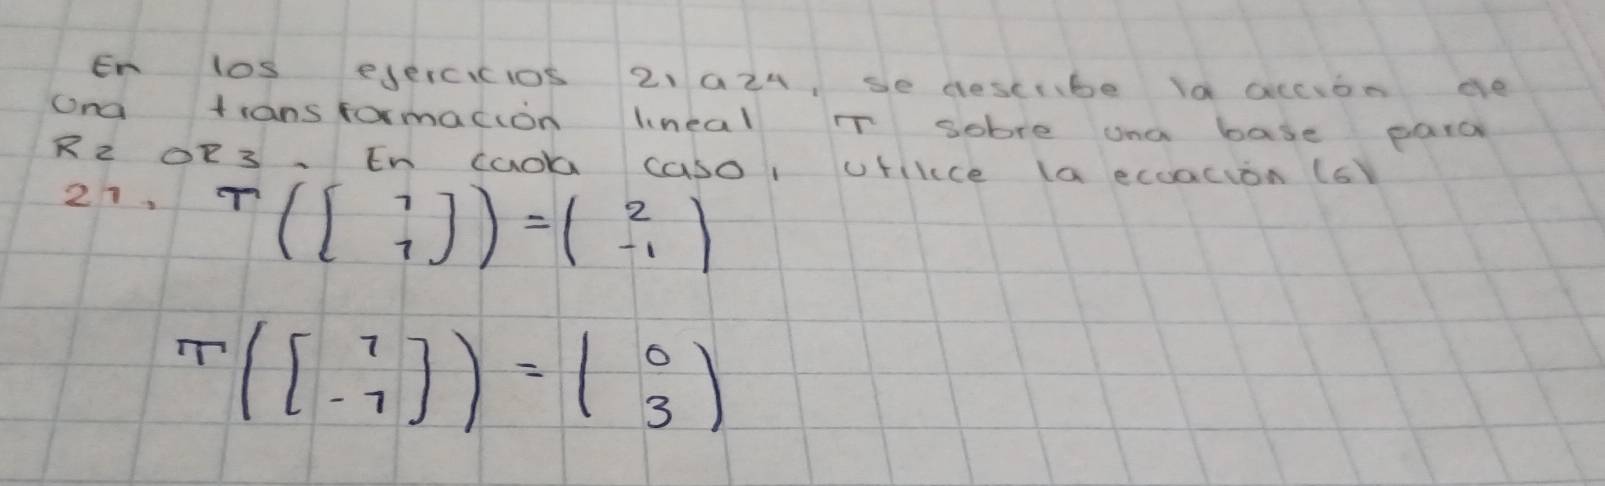 En los ejercicios 21 a 24, se describe la acción de
una transformación lineal T sobre una base para
R2 o R3. En cada caso, utilice la ecuación (6)
21. T([1 1]) = (2 -1)
T([1 -1]) = (0 3)